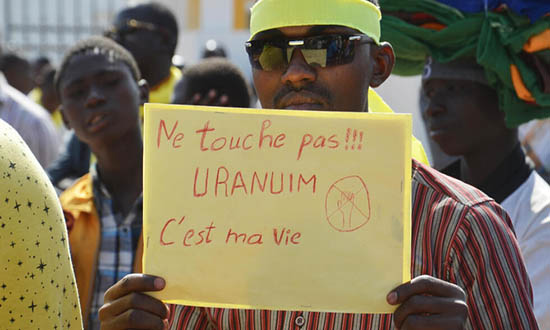 Ne touche pas!!!
URANUIM
C'est ma vie